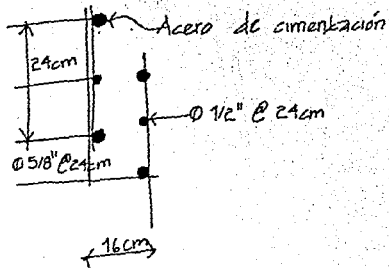 Acero de cimentación
24cm
Ø 1/2" @ 24cm
Ø 5/8" @ 24cm
16cm